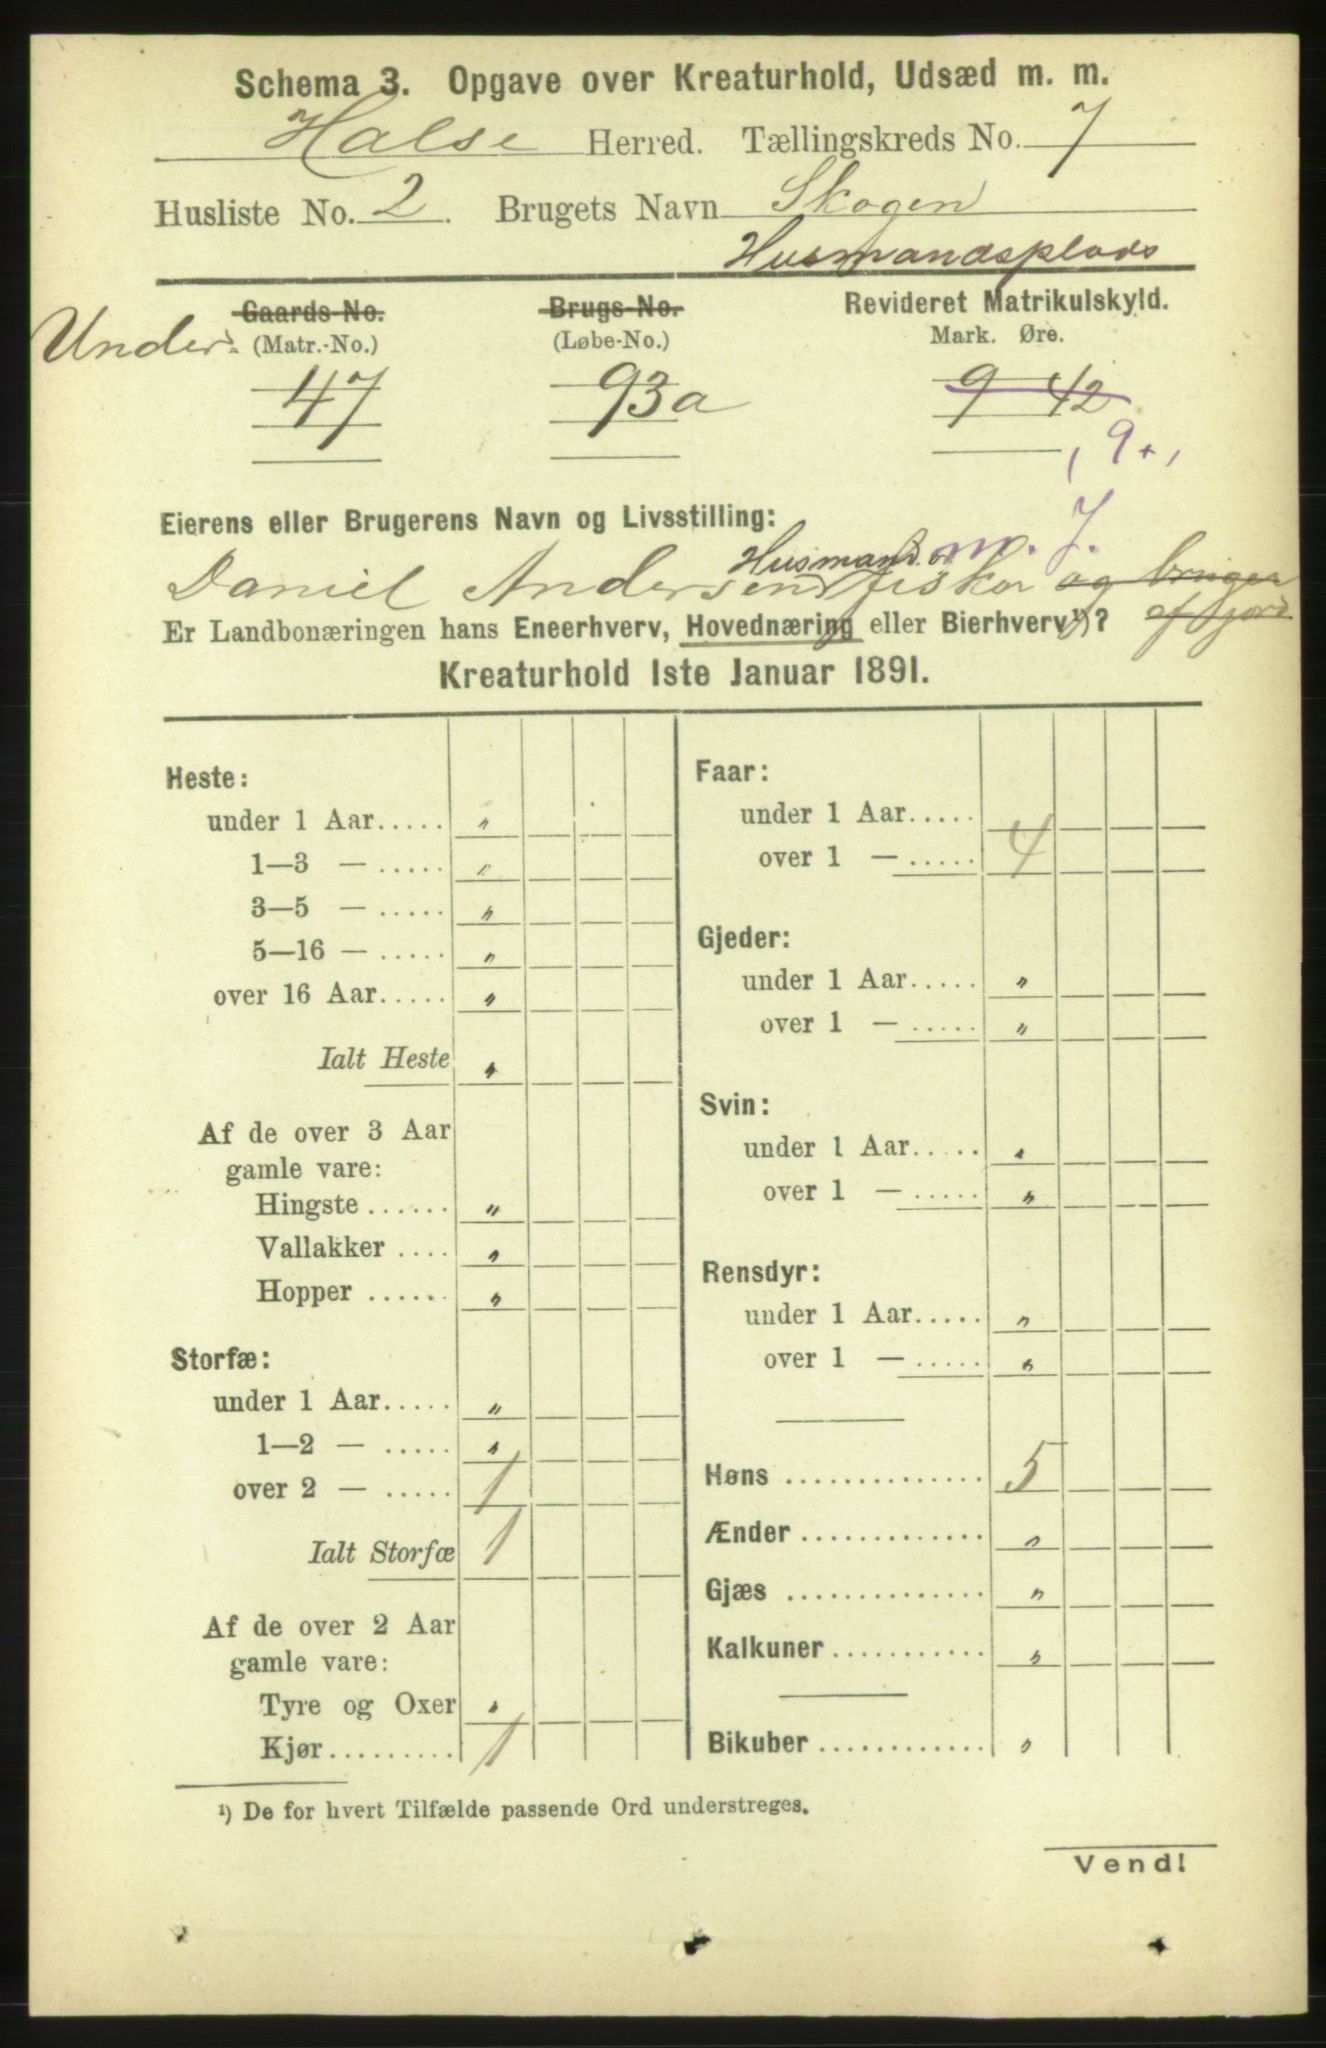 Schema 3. Opgave over Kreaturhold, Udsæd m. m.
Halse Herred. Tællingskreds No. 7
Husliste No. 2. Brugets Navn Skogen
Husmandsplads
Gaards-No. Brugs-No. Revideret Matrikulskyld.
Under (Matr.-No.) (Løbe-No.) Mark. Øre.
47 93a 9 42
9
Eierens eller Brugerens Navn og Livsstilling:
Husmand m. J.
Daniel Andersen fisker og bruger
af jord
Er Landbonæringen hans Eneerhverv, Hovednæring eller Bierhverv¹)?
Kreaturhold 1ste Januar 1891.
Heste:
under 1 Aar..... "
1—3 — ..... "
3—5 — ..... "
5—16 — ..... "
over 16 Aar..... "
Ialt Heste "
Af de over 3 Aar
gamle vare:
Hingste ...... "
Vallakker .... "
Hopper ...... "
Storfæ:
under 1 Aar..... "
1—2 — ..... "
over 2 — ..... 1
Ialt Storfæ 1
Af de over 2 Aar
gamle vare:
Tyre og Oxer "
Kjør.......... 1
Faar:
under 1 Aar.....
over 1 — ..... 4
Gjeder:
under 1 Aar..... "
over 1 — ..... "
Svin:
under 1 Aar..... "
over 1 — ..... "
Rensdyr:
under 1 Aar..... "
over 1 — ..... "
Høns .............. 5
Ænder ............. "
Gjæs .............. "
Kalkuner ........... "
Bikuber ............ "
¹) De for hvert Tilfælde passende Ord understreges.
Vend!